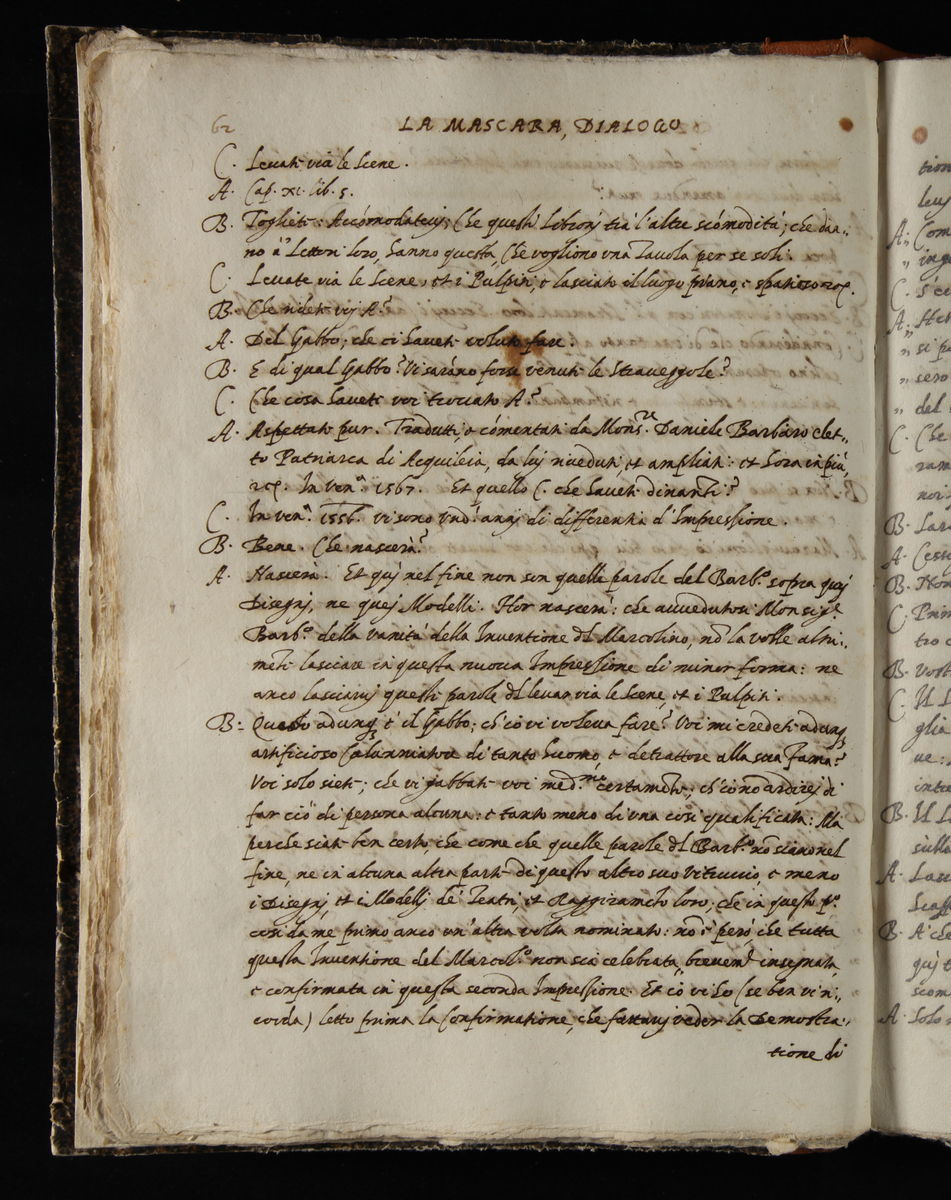 62 LA MASCARA, DIALOGO
C. Levate via le Scene.
A. Cap. XI. lib. 5.
B. Togliete: Accómodatevj; Che questi Librorj trà l'altre scómodità; che dan¬
no à Lettori loro, hanno questa, Che vogliono una Tavola per se soli.
C. Levate via le Scene, et i Pulpiti, e lasciato il luogo piano, e spatioso
B. Che ridete voj A?
A. Del Gabbo; che ci havete voluto fare.
B. E di qual Gabbo? Vi saráno forse venute le Traveggole?
C. Che cosa havete voi trovato A?
A. Aspettate pur. Tradutti, e cómentati da Mons.re Daniele Barbaro elet¬
to Patriarca di Acquileia, da luj riveduti, et ampliati: et hora in più,
In Ven.a 1567. Et quello C. che havete dinanti?
C. In Ven.a 1556. vi sono und. annj di differentia d'Impressione.
B. Bene. Che nascerà?
A. Nascerà. Et quj nel fine non son quelle parole del Barb.o sopra quej
Disegnj, ne quej Modelli. Hor nascerà: che avvedutosi Monsig.r
Barb.o della vanità della Inventione del Marcolino, nõ la volle altri¬
mẽti lasciare in questa nuova Impressione di minor forma: ne
anco lasciarvj queste parole dl levar via le Scene, et i Pulpiti.
B. Questo adunq; è il Gabbo; ch'io vi voleva fare? Voi mi credete adunq;
artificioso Calunniatore di tanto huomo, e detrattore alla sua Fama?
Voi solo siete; che vi gabbate voi med.mo certamẽte; ch'io nõ ardirej di
far ciò di persona alcuna: e tanto meno di una così qualificata: Ma
perche siate ben certi, che come che quelle parole dl Barb.o nõ siano nel
fine, ne in alcuna altra parte di questo altro suo Vitruvio, e meno
i Disegnj, et i Modellj de' Teatri, et Raggiramẽto loro; che in questo p.o
con da me primo anco un'altra volta nominato: nõ è però, che tutta
questa Inventione del Marcol.o non sia celebrata, brevemẽte insegnata,
e confirmata in questa seconda Impressione. Et io vi hò (se ben vi ri¬
corda) letto prima la Confirmatione, che fattavj veder la Demostra¬
tione di